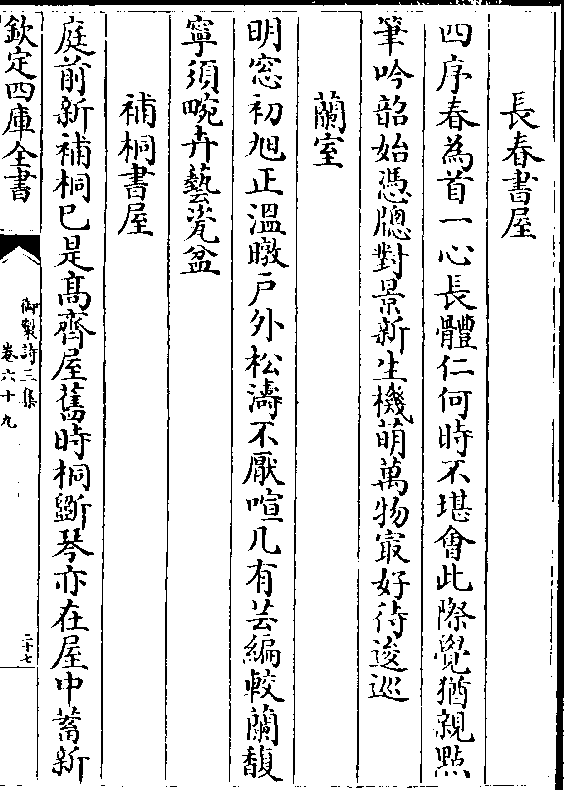 長春書屋
四序春為首一心長體仁何時不堪會此際覺猶親㸃
筆吟韶始憑牕對景新生機萌萬物冣好待逡巡
蘭室
明窓初旭正溫暾戶外松濤不厭喧几有芸編較蘭馥
寧須畹卉藝瓷盆
補桐書屋
庭前新補桐已是髙齊屋舊時桐斵琴亦在屋中蓄新
欽定四庫全書
御製詩三集
卷六十九
二十七